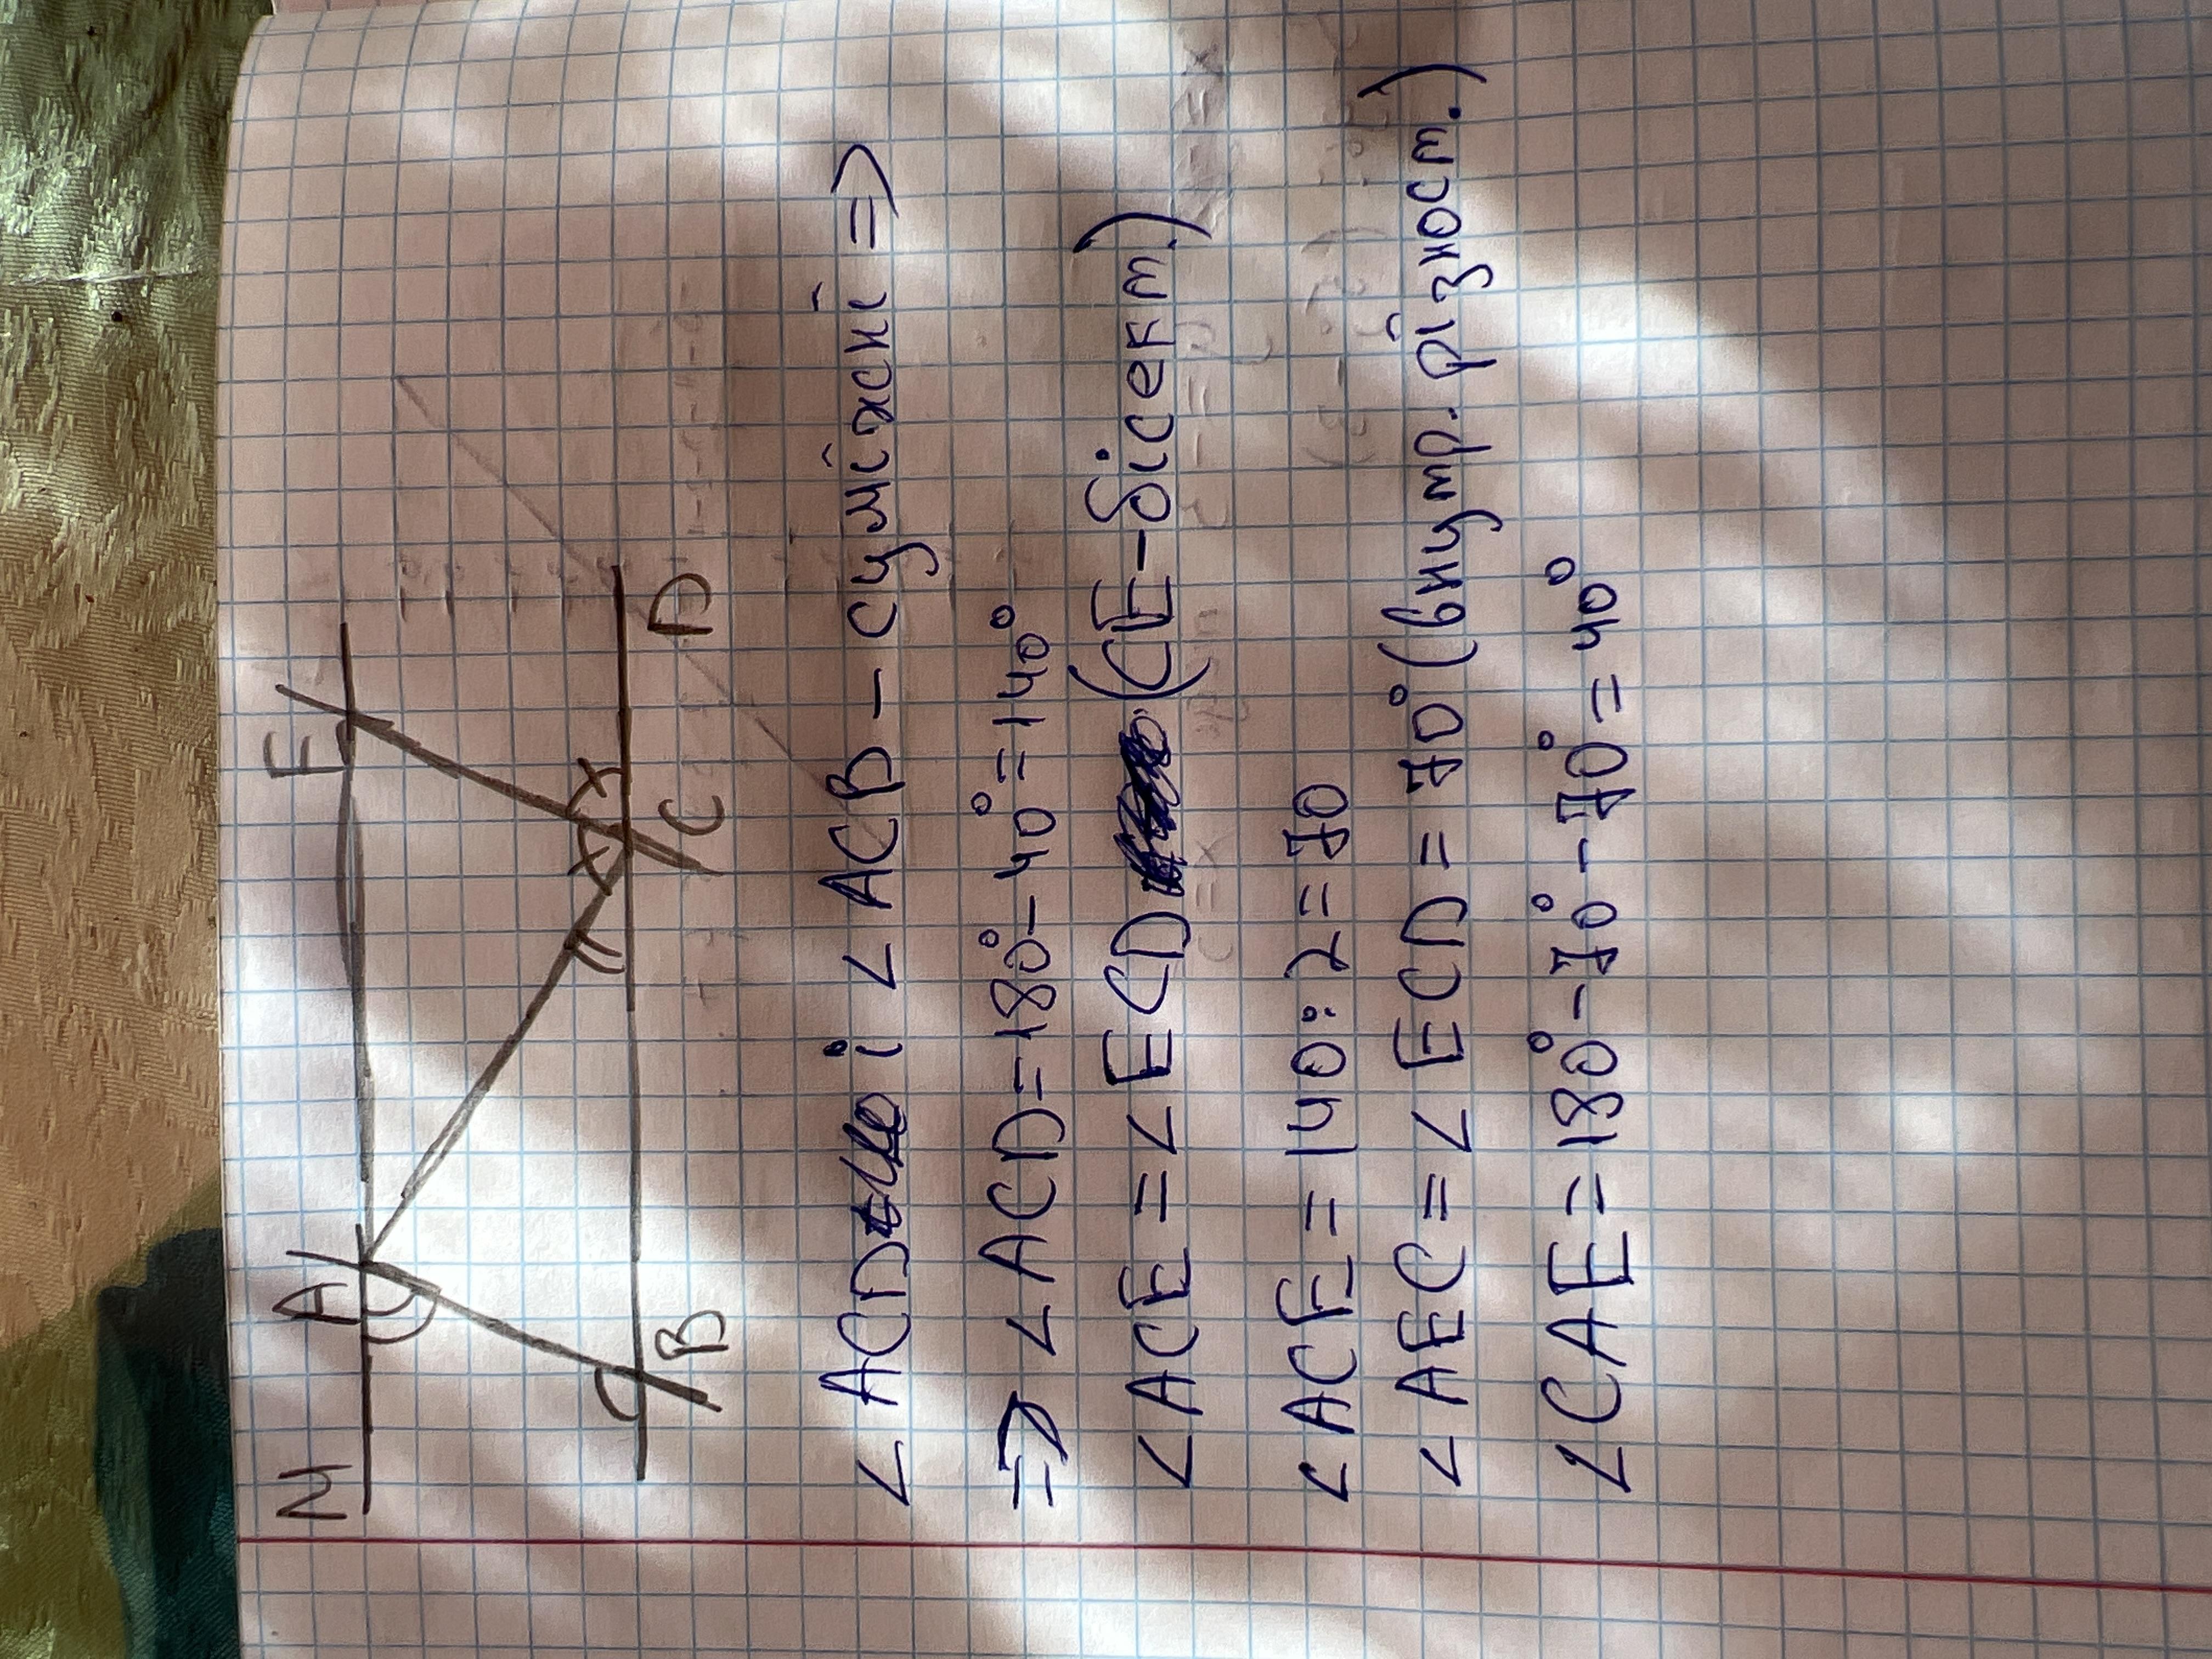 M A E
B C D
∠ACD і ∠ACB - суміжні =>
=> ∠ACD = 180° - 40° = 140°
∠ACE = ∠ECD (CE - бісект.)
∠ACE = 140 : 2 = 70
∠AEC = ∠ECD = 70° (внутр. різност.)
∠CAE = 180° - 70° - 70° = 40°